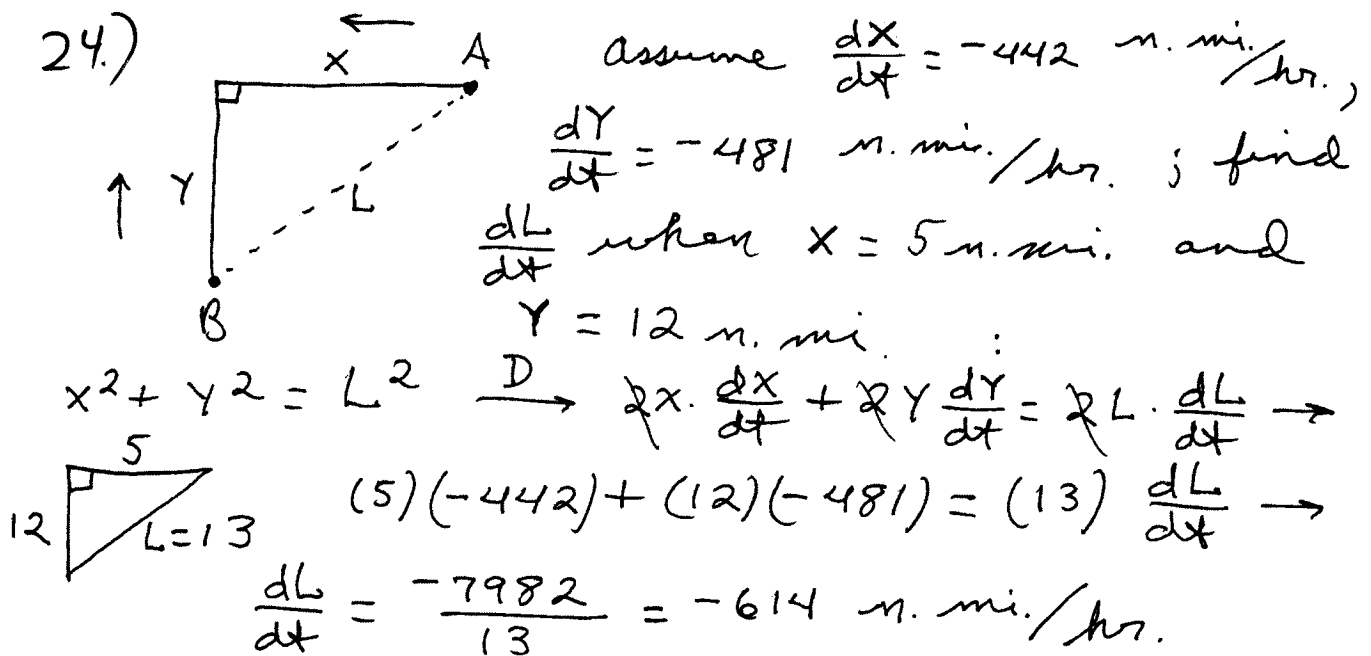 24.)
x A
Y L
B
assume dX/dt = -442 n. mi./hr.,
dY/dt = -481 n. mi./hr. ; find
dL/dt when x = 5 n. mi. and
Y = 12 n. mi. :
x² + Y² = L² D→ 2x · dX/dt + 2Y dY/dt = 2L · dL/dt →
5
12 L=13
(5)(-442) + (12)(-481) = (13) dL/dt →
dL/dt = -7982/13 = -614 n. mi./hr.